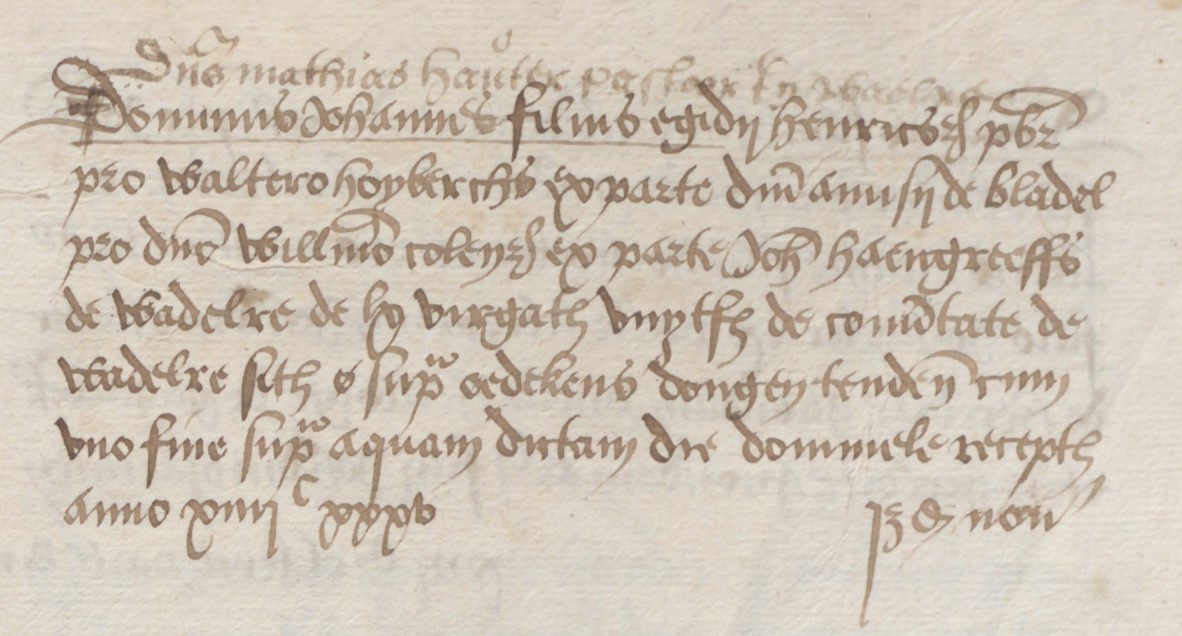 Dns mathias hauter pastoer
Dominus Johannes filius egidij henricss pbr
pro waltero hoyberchs ex parte dni amisij de bladel
pro dno willmo coleners ex parte Joh haengreeffs
de wadelre de virgat vuytfh de comitate de
wadelre sith s supra oedekens dongen tenden cum
vno fine supra aquam dictam die dommele recepth
anno xiiij C xxxv non